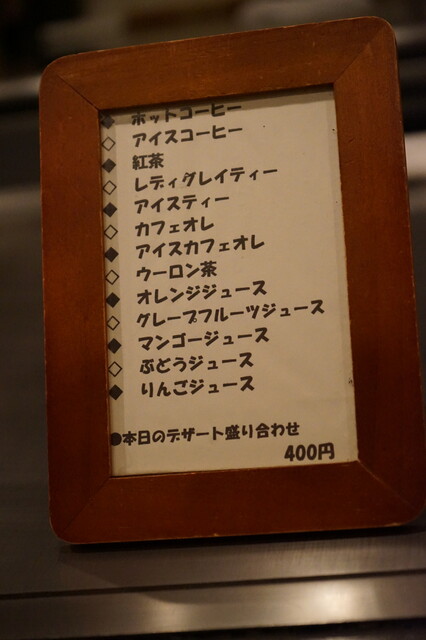 ◆ ホットコーヒー
◇ アイスコーヒー
◆ 紅茶
◇ レディグレイティー
◆ アイスティー
◇ カフェオレ
◆ アイスカフェオレ
◇ ウーロン茶
◆ オレンジジュース
◇ グレープフルーツジュース
◆ マンゴージュース
◇ ぶどうジュース
◆ りんごジュース
●本日のデザート盛り合わせ
400円